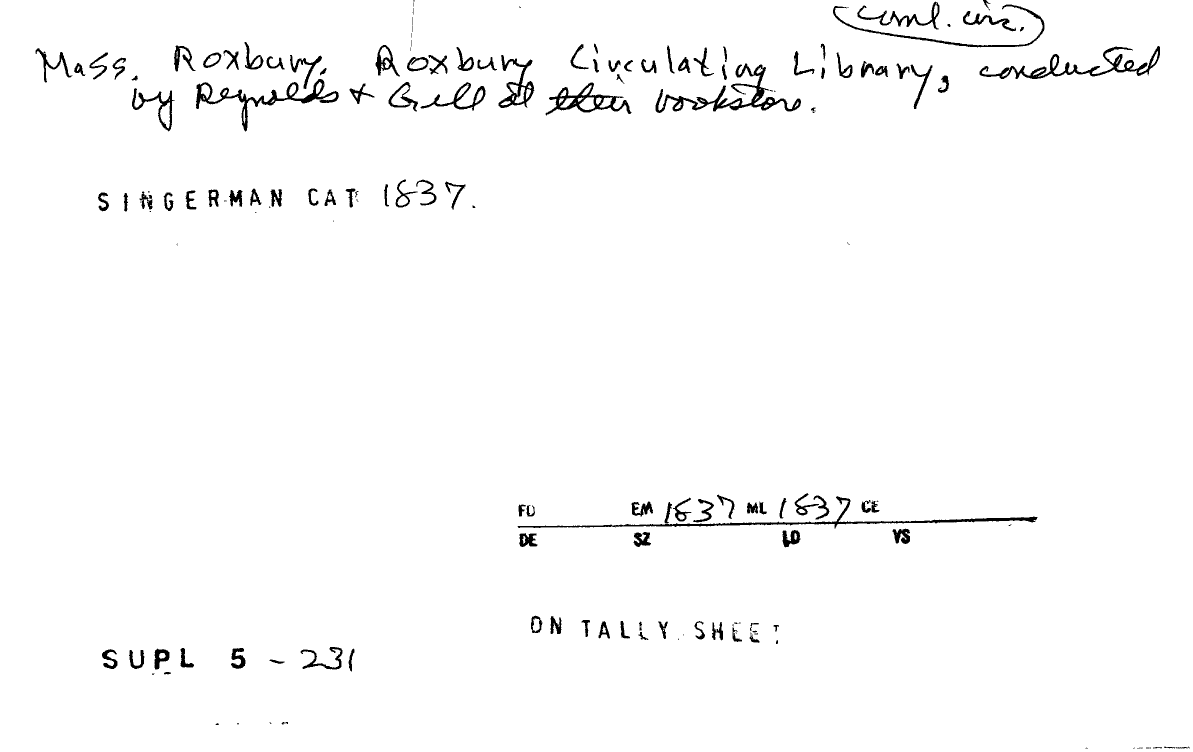 coml. circ.
Mass. Roxbury. Roxbury Circulating Library, conducted
by Reynolds + Grell at their bookstore.
SINGERMAN CAT 1837.
FD EM 1837 ML 1837 CE
DE SZ LD VS
ON TALLY SHEET
SUPL 5 - 231